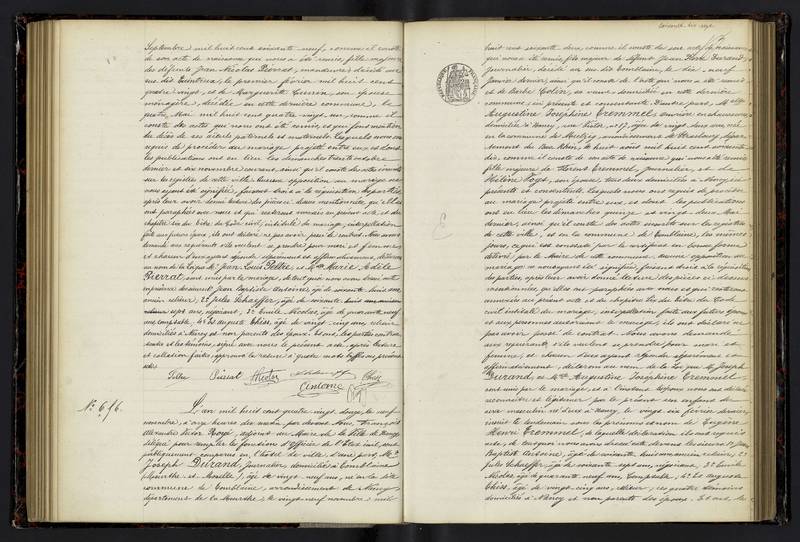 Septembre mil huit cent soixante neuf, comme il conste
de son acte de naissance qui nous a été remis, fille majeure
des défunts Jean Nicolas Pierrat, manœuvre, décédé
le premier février mil huit cent
quatre vingt, et de Marguerite son épouse
ménagère, décédée en cette dernière commune, le
quatre Mai mil huit cent quatre vingt un, comme il
conste des actes qui nous ont été remis, et qui font mention
du décès de ses aïeuls paternels et maternels. Lesquels nous ont
requis de procéder au mariage projeté entre eux et dont
les publications ont eu lieu les dimanches trente octobre
dernier et six novembre courant, ainsi qu'il conste des actes inscrits
sur les registres de cette ville. Aucune opposition au mariage ne
nous ayant été signifiée, faisant droit à la réquisition des parties,
après leur avoir donné lecture des pièces ci-dessus mentionnées qu'elles
ont paraphées avec nous et qui resteront annexées au présent acte et du
chapitre six du titre du Code civil, intitulé du mariage, interpellation
faite aux futurs époux, ils ont déclaré ne pas avoir passé de contrat. Nous avons
demandé aux requérants s'ils veulent se prendre pour mari et femme
et chacun d'eux ayant répondu séparément et affirmativement, déclarons
au nom de la Loi que Mr Jean Louis Pettre et Mlle Marie Adèle
Pierrat sont unis par le mariage, de tout quoi nous avons dressé acte
en présence de Jean Baptiste Antoine, âgé de soixante huit ans
ancien relieur, 2° Jules Schaeffer, âgé de soixante
sept ans, négociant, 3° Emile Nicolas, âgé de quarante neuf
ans, comptable, 4° Et auguste Thiss, âgé de vingt cinq ans, relieur,
domiciliés à Nancy et non parents des époux. Et ont, les parties contrac-
tantes et les témoins, signé avec nous le présent acte, après lecture
et collation faites, approuvé la rature de quatre mots biffés au présent
acte.
Pierrat
Antoine Thiss
N° 616.
L'an mil huit cent quatre vingt douze, le neuf
novembre, à onze heures du matin par devant Nous, François
Alexandre Victor adjoint au Maire de la Ville de Nancy
délégué pour remplir les fonctions d'Officier de l'Etat civil, sont
publiquement comparus en l'hôtel de ville d'une part, Mr
Joseph Durand, journalier, domicilié à Comblaine
Meurthe et Moselle, âgé de vingt neuf ans, né en la dite
commune de Comblaine, arrondissement de Nancy,
département de la Meurthe, le vingt neuf novembre mil
huit cent soixante deux, comme il conste de son acte de naissance
qui nous a été remis, fils majeur de défunt Jean Durand,
journalier, décédé au dit Comblaine, le dix neuf
Janvier dernier, ainsi qu'il conste de l'acte qui nous a été remis
et de Barbe Colin, sa veuve, domiciliée en cette dernière
commune, ici présente et consentante. D'autre part, Mlle
Augustine Joséphine Tremmel, ouvrière en chaussures
domiciliée à Nancy, rue N° 17, âgée de vingt deux ans, née
en la commune de Mutzig, arrondissement de Strasbourg, dépar-
tement du Bas Rhin, le huit août mil huit cent soixante
dix, comme il conste de son acte de naissance qui nous a été remis
fille majeure de Florent Tremmel, journalier, et de
Hélène Vogt, son épouse, tous deux domiciliés à Nancy, ici
présents et consentants. Lesquels nous ont requis de procéder
au mariage projeté entre eux, et dont les publications
ont eu lieu les dimanches quinze et vingt deux Mai
dernier, ainsi qu'il conste des actes inscrits sur les registres
de cette ville, et en la commune de Comblaine, les mêmes
jours, ce qui est constaté par le certificat en bonne forme
délivré par le Maire de cette commune. Aucune opposition au
mariage ne nous ayant été signifiée, faisant droit à la réquisition
des parties, après leur avoir donné lecture des pièces ci-dessus
mentionnées, qu'elles ont paraphées avec nous et qui resteront
annexées au présent acte et du chapitre six du titre du Code
civil intitulé du mariage, interpellation faite aux futurs époux
et aux personnes autorisant le mariage, ils ont déclaré ne
pas avoir passé de contrat. Nous avons demandé
aux requérants s'ils veulent se prendre pour mari et
femme, et chacun d'eux ayant répondu séparément et
affirmativement, déclarons au nom de la Loi que Mr Joseph
Durand, et Mlle Augustine Joséphine Tremmel
sont unis par le mariage, et à l'instant les époux nous ont déclaré
reconnaître et légitimer par le présent un enfant du
sexe masculin né d'eux à Nancy, le vingt six février dernier,
inscrit le lendemain sous les prénoms et nom de Eugène
Henri Tremmel, de laquelle déclaration ils ont requis
acte, de tout quoi nous avons dressé acte, devant les sieurs 1° Jean
Baptiste Antoine, âgé de soixante huit ans, ancien relieur, 2°
Jules Schaeffer, âgé de soixante sept ans, négociant, 3° Emile
Nicolas, âgé de quarante neuf ans, Comptable, 4° Et auguste
Thiss, âgé de vingt cinq ans, relieur, ces quatre témoins
domiciliés à Nancy et non parents des époux. Et ont, les